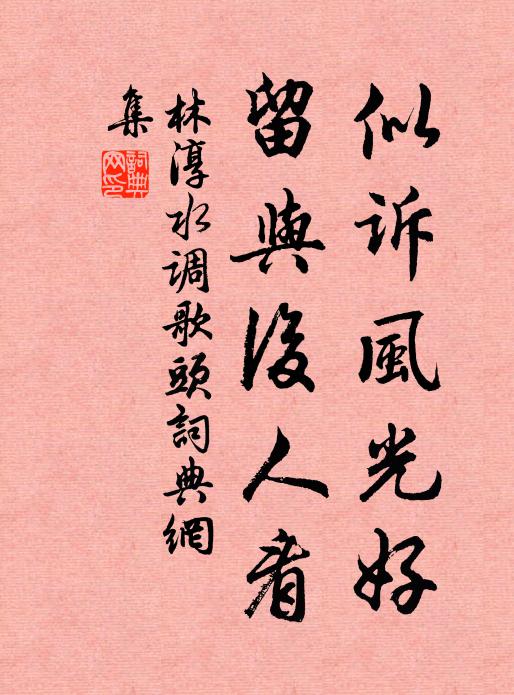 似诉風光好
留與後人看
林淳水调歌頭詞典網
集
詞典
网印